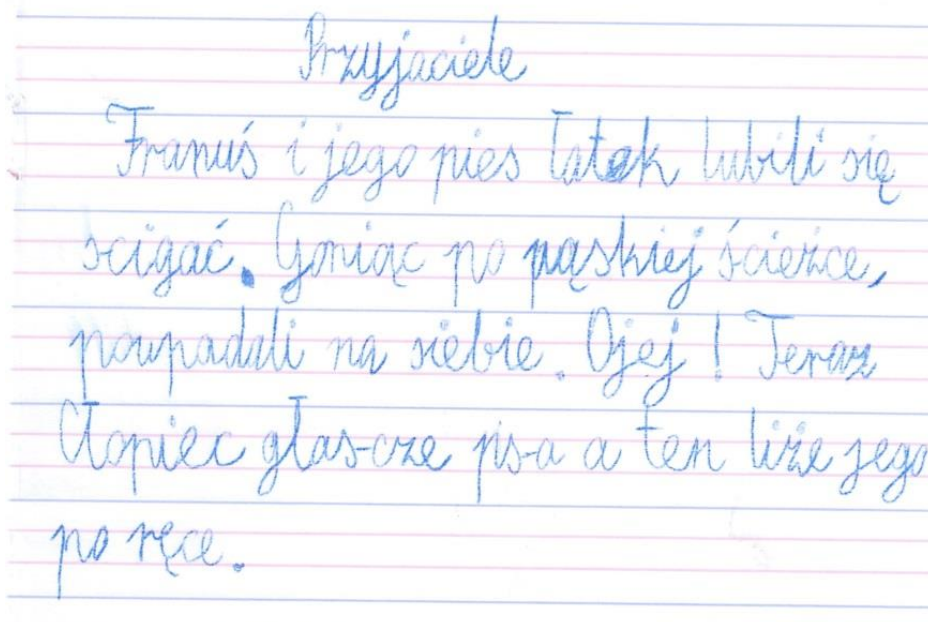 Przyjaciele
Franuś i jego pies Łatek lubili się
scigać. Goniąc po wąskiej ścieżce,
powpadali na siebie. Ojej! Teraz
Chopiec głascze psa a ten liże jego
po ręce.